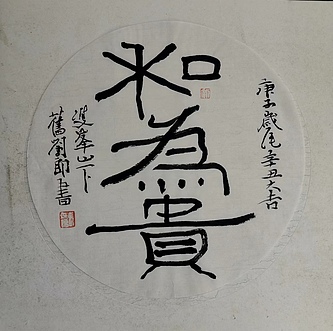 庚子歲尾辛丑大吉
和為貴
雙峯山下
舊劉郎書